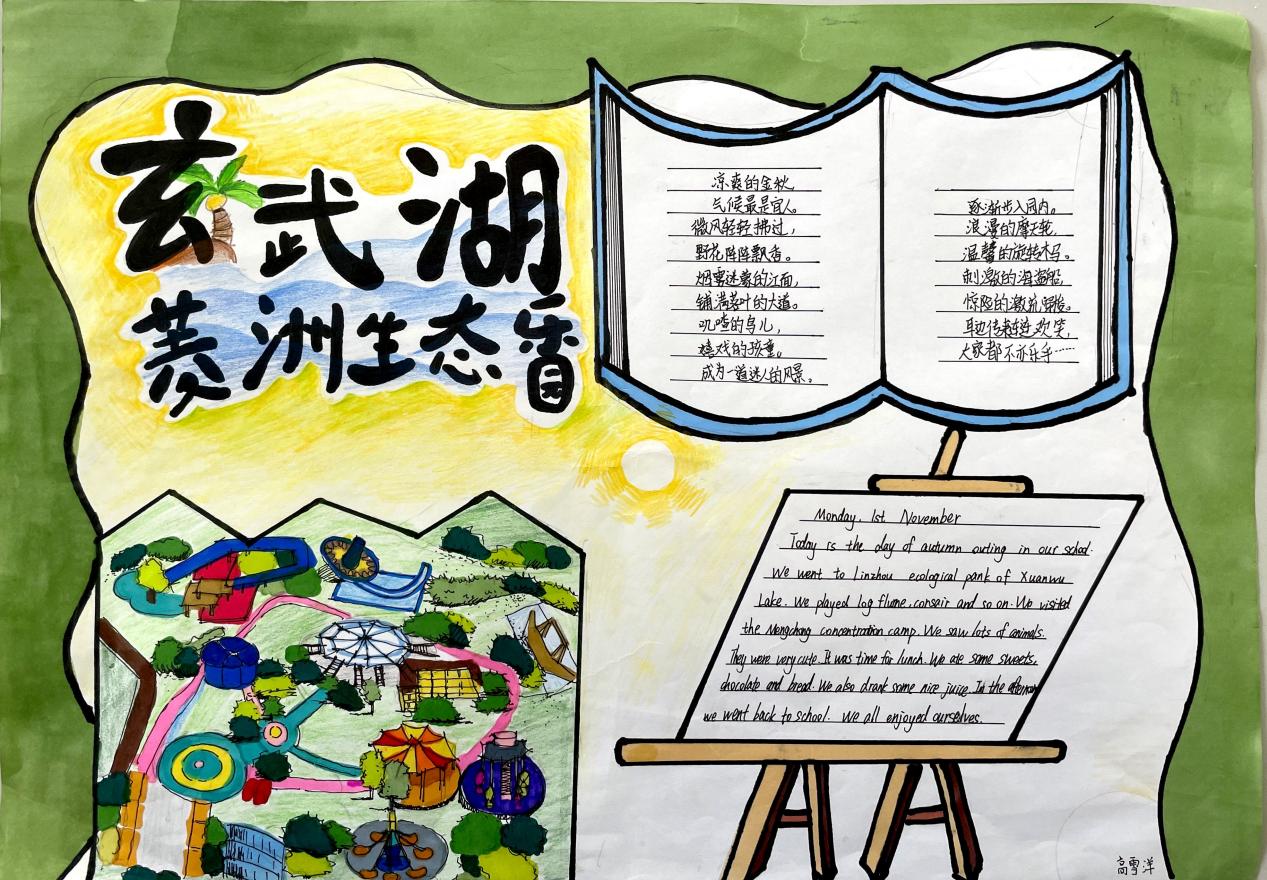 玄武湖
菱洲生态香
凉爽的金秋
气候最是宜人。
微风轻轻拂过，
野花阵阵飘香。
烟雾迷蒙的江面，
铺满落叶的大道。
叽喳的鸟儿，
嬉戏的孩童。
成为一道迷人的风景。
逐渐步入园内。
浪漫的摩天轮，
温馨的旋转木马。
刺激的海盗船，
惊险的激流勇进。
耳边传来连连欢笑，
大家都不亦乐乎……
Monday, 1st November
Today is the day of autumn outing in our school.
We went to linzhou ecological park of Xuanwu
Lake. We played log flume, corsair and so on. We visited
the Mengchong concentration camp. We saw lots of animals.
They were very cute. It was time for lunch. We ate some sweets,
chocolate and bread. We also drank some nice juice. In the afternoon
we went back to school. We all enjoyed ourselves.
高雪洋